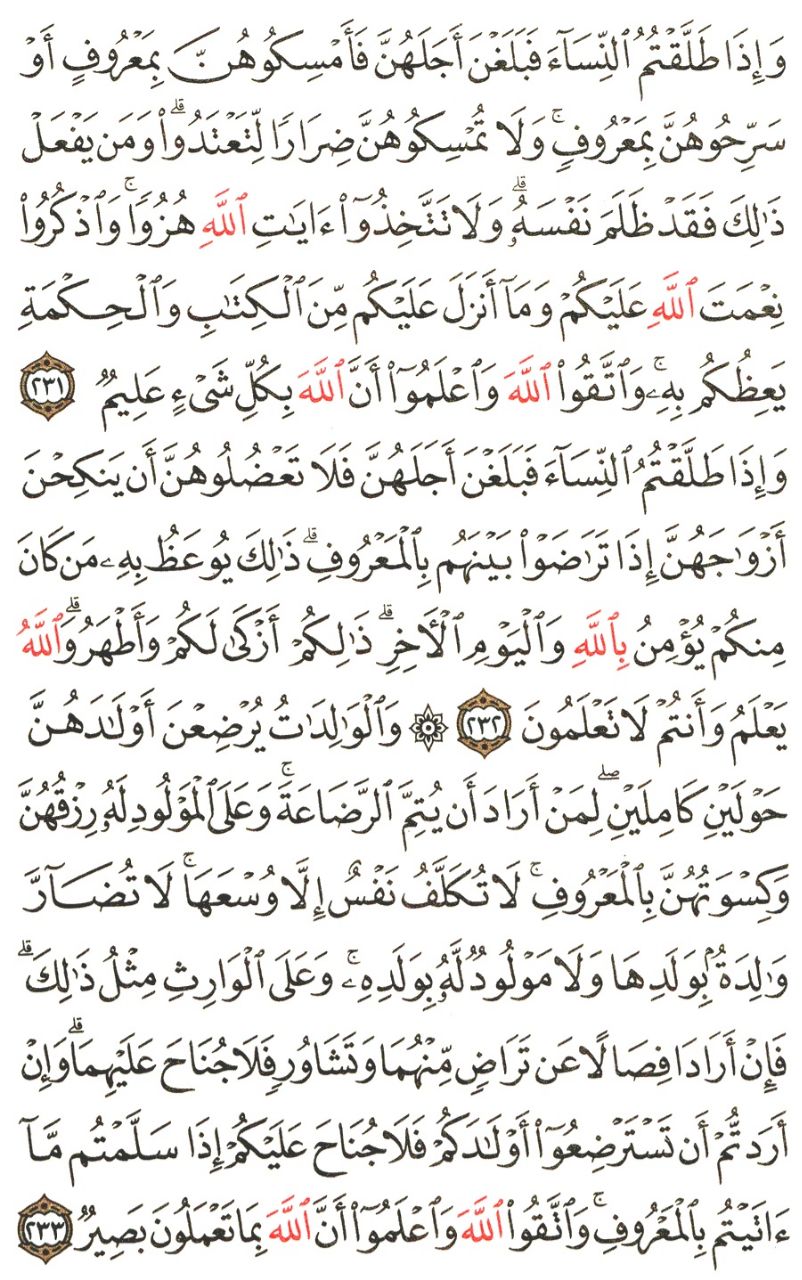 وَإِذَا طَلَّقْتُمُ ٱلنِّسَآءَ فَبَلَغْنَ أَجَلَهُنَّ فَأَمْسِكُوهُنَّ بِمَعْرُوفٍ أَوْ
سَرِّحُوهُنَّ بِمَعْرُوفٍۚ وَلَا تُمْسِكُوهُنَّ ضِرَارًا لِّتَعْتَدُوا۟ۗ وَمَن يَفْعَلْ
ذَٰلِكَ فَقَدْ ظَلَمَ نَفْسَهُۥۗ وَلَا تَتَّخِذُوٓا۟ ءَايَٰتِ ٱللَّهِ هُزُوًاۚ وَٱذْكُرُوا۟
نِعْمَتَ ٱللَّهِ عَلَيْكُمْ وَمَآ أَنزَلَ عَلَيْكُم مِّنَ ٱلْكِتَٰبِ وَٱلْحِكْمَةِ
يَعِظُكُم بِهِۦۚ وَٱتَّقُوا۟ ٱللَّهَ وَٱعْلَمُوٓا۟ أَنَّ ٱللَّهَ بِكُلِّ شَىْءٍ عَلِيمٌ ٢٣١
وَإِذَا طَلَّقْتُمُ ٱلنِّسَآءَ فَبَلَغْنَ أَجَلَهُنَّ فَلَا تَعْضُلُوهُنَّ أَن يَنكِحْنَ
أَزْوَٰجَهُنَّ إِذَا تَرَٰضَوْا۟ بَيْنَهُم بِٱلْمَعْرُوفِۗ ذَٰلِكَ يُوعَظُ بِهِۦ مَن كَانَ
مِنكُمْ يُؤْمِنُ بِٱللَّهِ وَٱلْيَوْمِ ٱلْأَخِرِۗ ذَٰلِكُمْ أَزْكَىٰ لَكُمْ وَأَطْهَرُۗ وَٱللَّهُ
يَعْلَمُ وَأَنتُمْ لَا تَعْلَمُونَ ٢٣٢ ۞ وَٱلْوَٰلِدَٰتُ يُرْضِعْنَ أَوْلَٰدَهُنَّ
حَوْلَيْنِ كَامِلَيْنِۖ لِمَنْ أَرَادَ أَن يُتِمَّ ٱلرَّضَاعَةَۚ وَعَلَى ٱلْمَوْلُودِ لَهُۥ رِزْقُهُنَّ
وَكِسْوَتُهُنَّ بِٱلْمَعْرُوفِۚ لَا تُكَلَّفُ نَفْسٌ إِلَّا وُسْعَهَاۚ لَا تُضَآرَّ
وَٰلِدَةُۢ بِوَلَدِهَا وَلَا مَوْلُودٌ لَّهُۥ بِوَلَدِهِۦۚ وَعَلَى ٱلْوَارِثِ مِثْلُ ذَٰلِكَۗ
فَإِنْ أَرَادَا فِصَالًا عَن تَرَاضٍ مِّنْهُمَا وَتَشَاوُرٍ فَلَا جُنَاحَ عَلَيْهِمَاۗ وَإِنْ
أَرَدتُّمْ أَن تَسْتَرْضِعُوٓا۟ أَوْلَٰدَكُمْ فَلَا جُنَاحَ عَلَيْكُمْ إِذَا سَلَّمْتُم مَّآ
ءَاتَيْتُم بِٱلْمَعْرُوفِۗ وَٱتَّقُوا۟ ٱللَّهَ وَٱعْلَمُوٓا۟ أَنَّ ٱللَّهَ بِمَا تَعْمَلُونَ بَصِيرٌ ٢٣٣